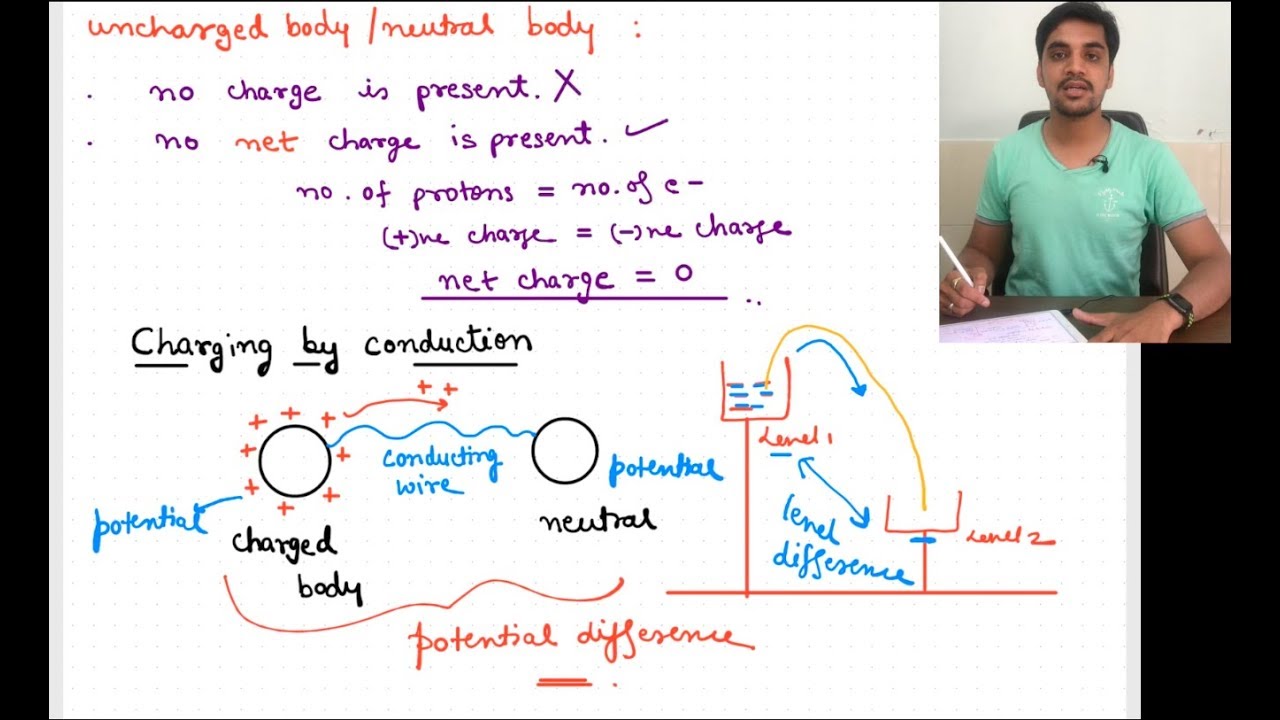 uncharged body / neutral body :
. no charge is present. X
. no net charge is present. ✓
no. of protons = no. of e-
(+)ve charge = (-)ve charge
net charge = 0
Charging by conduction
+ + + + + + + + + + +
conducting
wire
potential
potential
charged
body
neutral
potential difference
Level 1
level
difference
Level 2